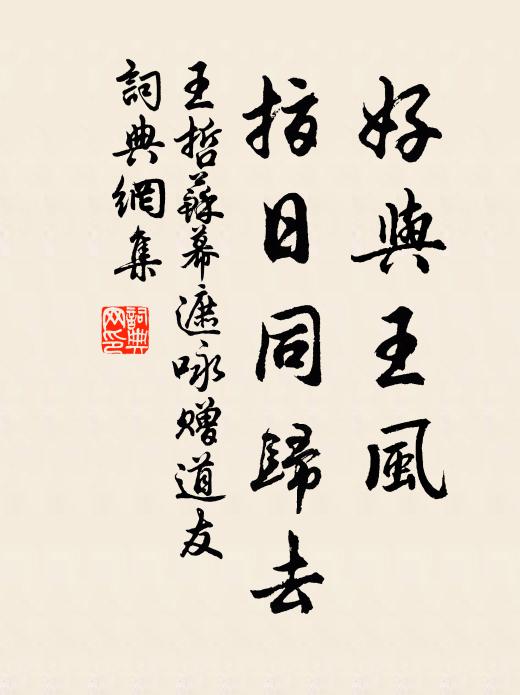 好與王風
指日同歸去
王哲蘇幕遮咏贈道友
詞典網集
詞典網印